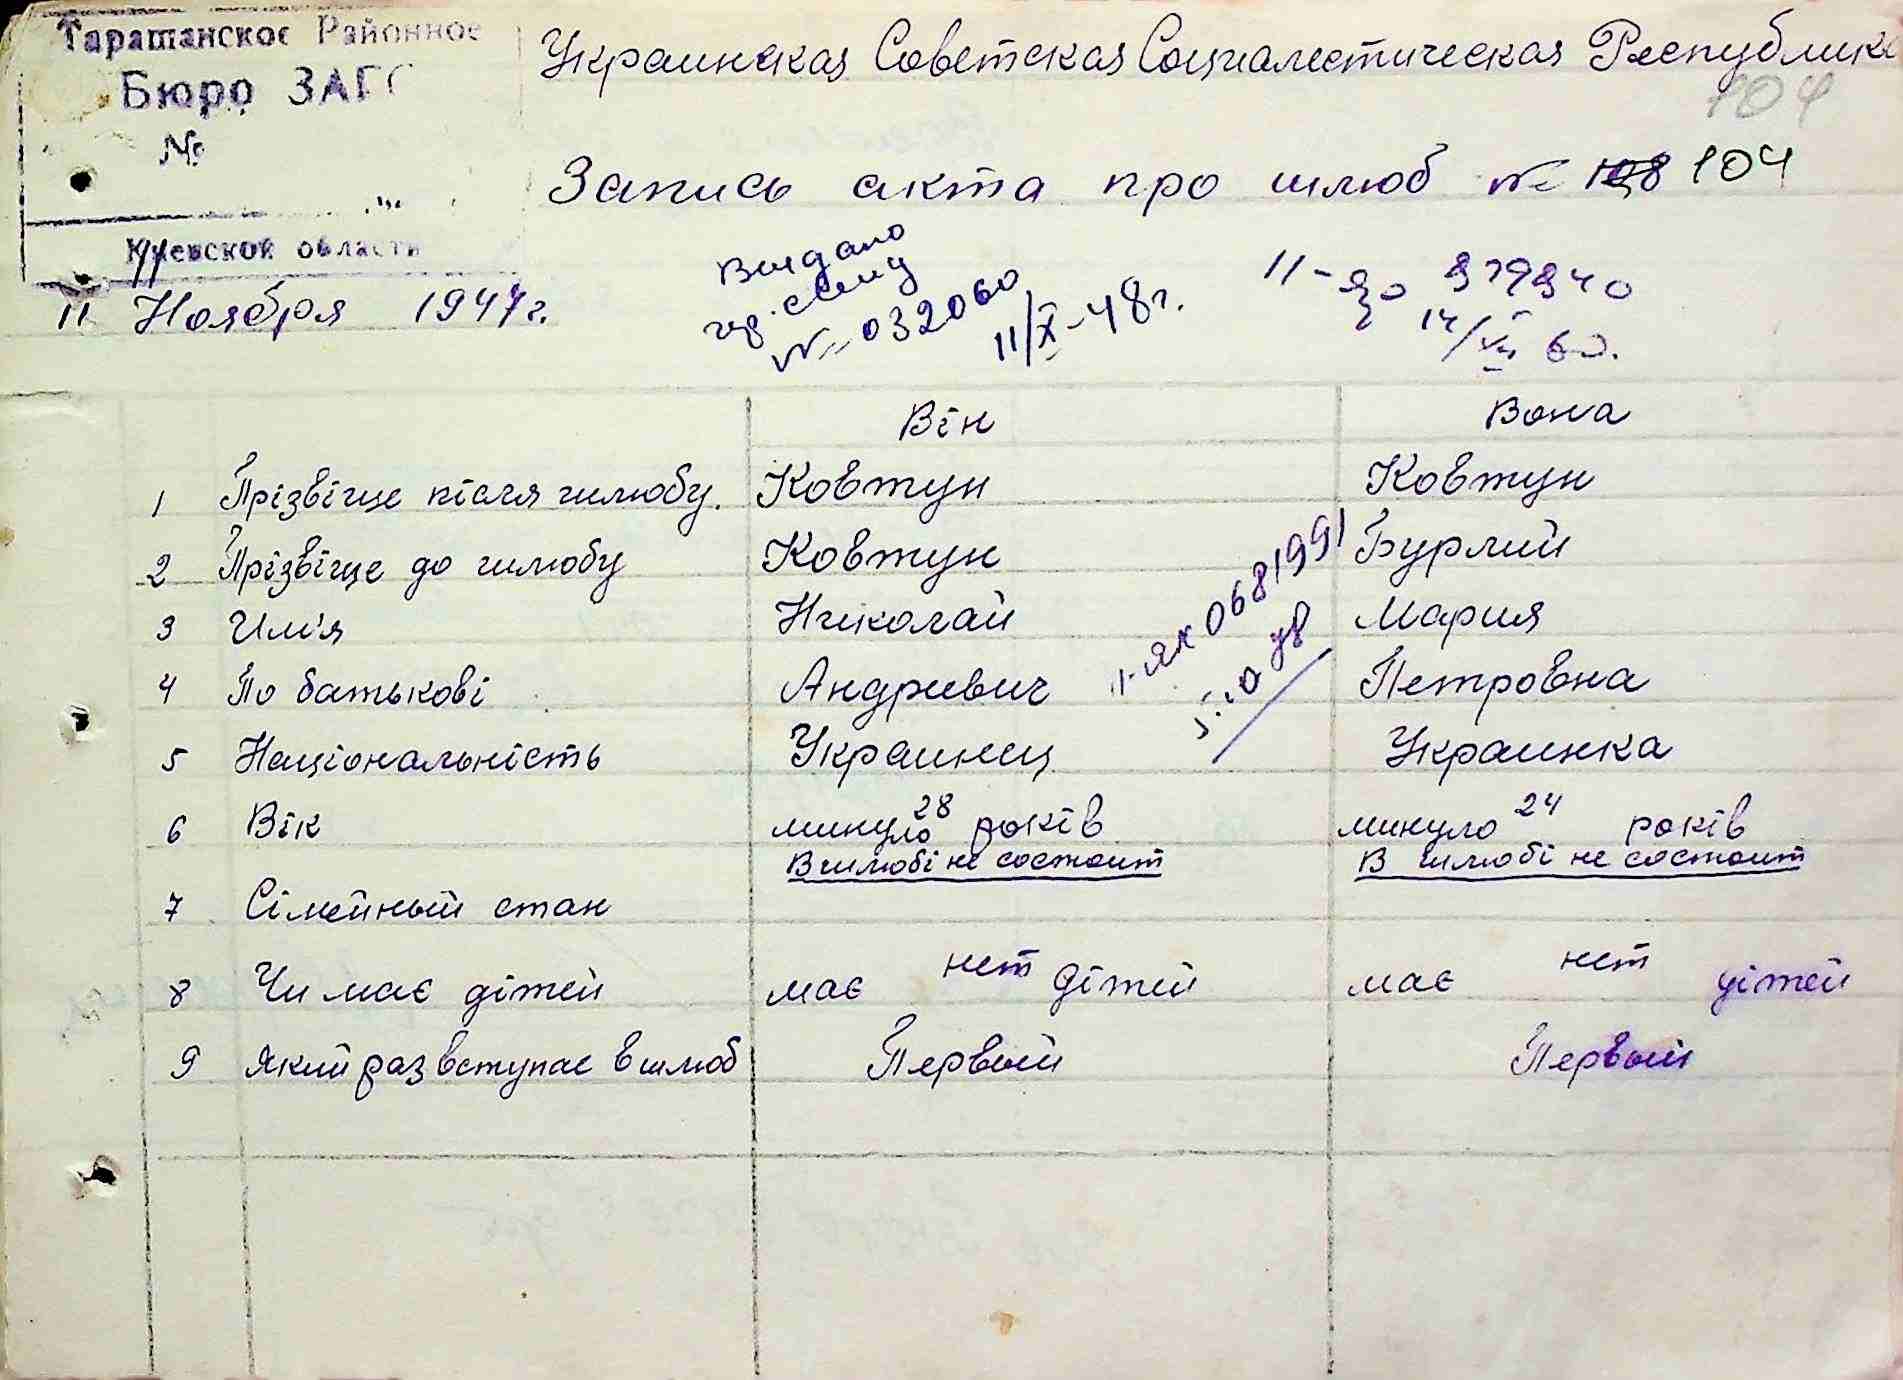 Таращанское Районное
Бюро ЗАГС
№
Киевской области
11 Ноября 1947 г.
Украинская Советская Социалестическая Республика
104
Запись акта про шлюб № 108 104
Выдано
№ 032060
11/X-48 г.
379340
14/VII 60.
Він Вона
1 Прізвіще після шлюбу. Ковтун Ковтун
2 Прізвіще до шлюбу Ковтун Бурлий
3 Им'я Николай Мария
4 По батькові Андреевич Петровна
5 Національність Украинец Украинка
II-ЯК 0681991
6 Вік минуло 28 років минуло 24 років
В шлюбі не состоит В шлюбі не состоит
7 Сімейный стан
8 Чи має дітей має нет дітей має нет дітей
9 Який раз вступає в шлюб Первый Первый